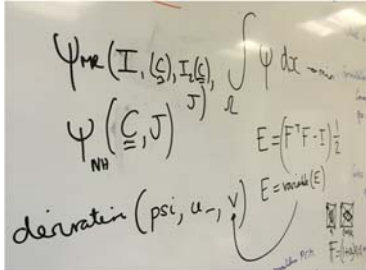 ψ_MR (I_1(C), I_2(C), J)
∫_Ω ψ dx → min
ψ_NH (C, J)
E = (FᵀF - I) 1/2
E = variable(E)
derivation (psi, u_, v)